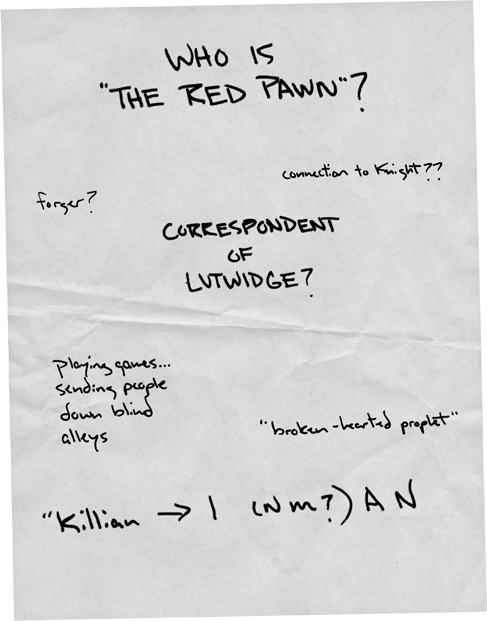 WHO IS
"THE RED PAWN"?
connection to Knight??
forger?
CORRESPONDENT
OF
LUTWIDGE?
playing games...
sending people
down blind
alleys
"broken-hearted prophet"
"Killian → I (N m?) A N